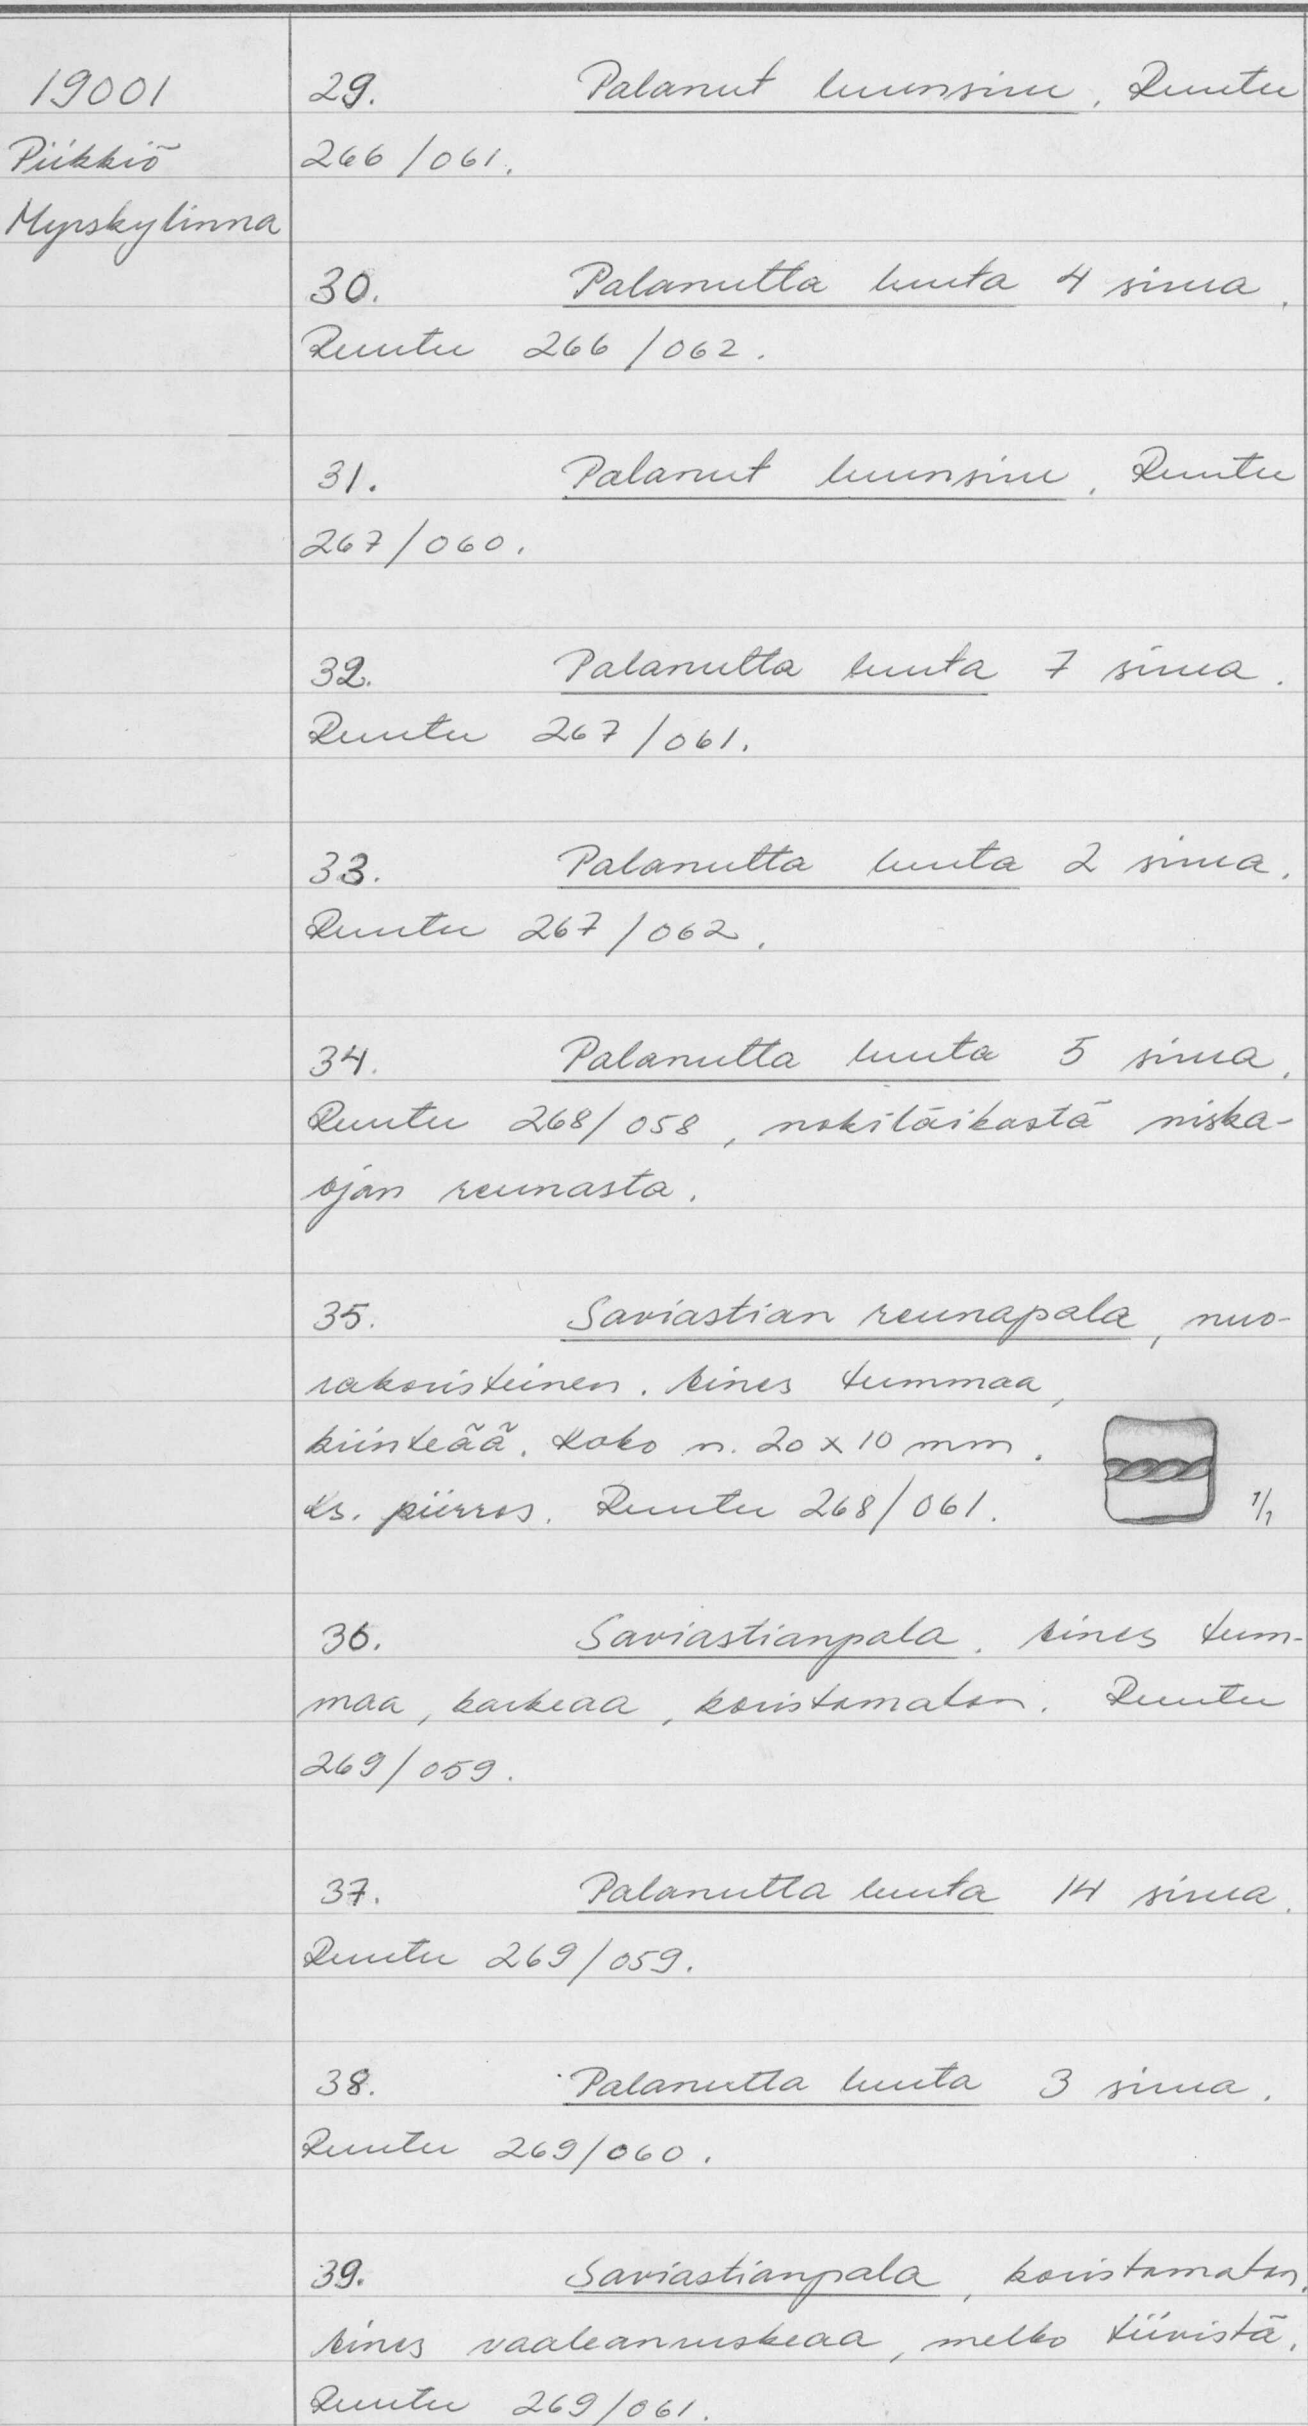 19001
Piikkiö
Myrskylinna
29. Palanut luunsiru, Ruutu
266/061.
30. Palanutta luuta 4 sirua.
Ruutu 266/062.
31. Palanut luunsiru, Ruutu
267/060.
32. Palanutta luuta 7 sirua.
Ruutu 267/061.
33. Palanutta luuta 2 sirua.
Ruutu 267/062.
34. Palanutta luuta 5 sirua.
Ruutu 268/058, nokiläikästä niska-
ojan reunasta.
35. Saviastian reunapala, nuo-
rakoristeinen. Aines tummaa,
kiinteää. Koko n. 20 x 10 mm.
Ks. piirros. Ruutu 268/061.
1/1
36. Saviastianpala. Aines tum-
maa, karkeaa, koristamaton. Ruutu
269/059.
37. Palanutta luuta 14 sirua.
Ruutu 269/059.
38. Palanutta luuta 3 sirua.
Ruutu 269/060.
39. Saviastianpala, koristamaton.
Aines vaaleanruskeaa, melko tiivistä.
Ruutu 269/061.